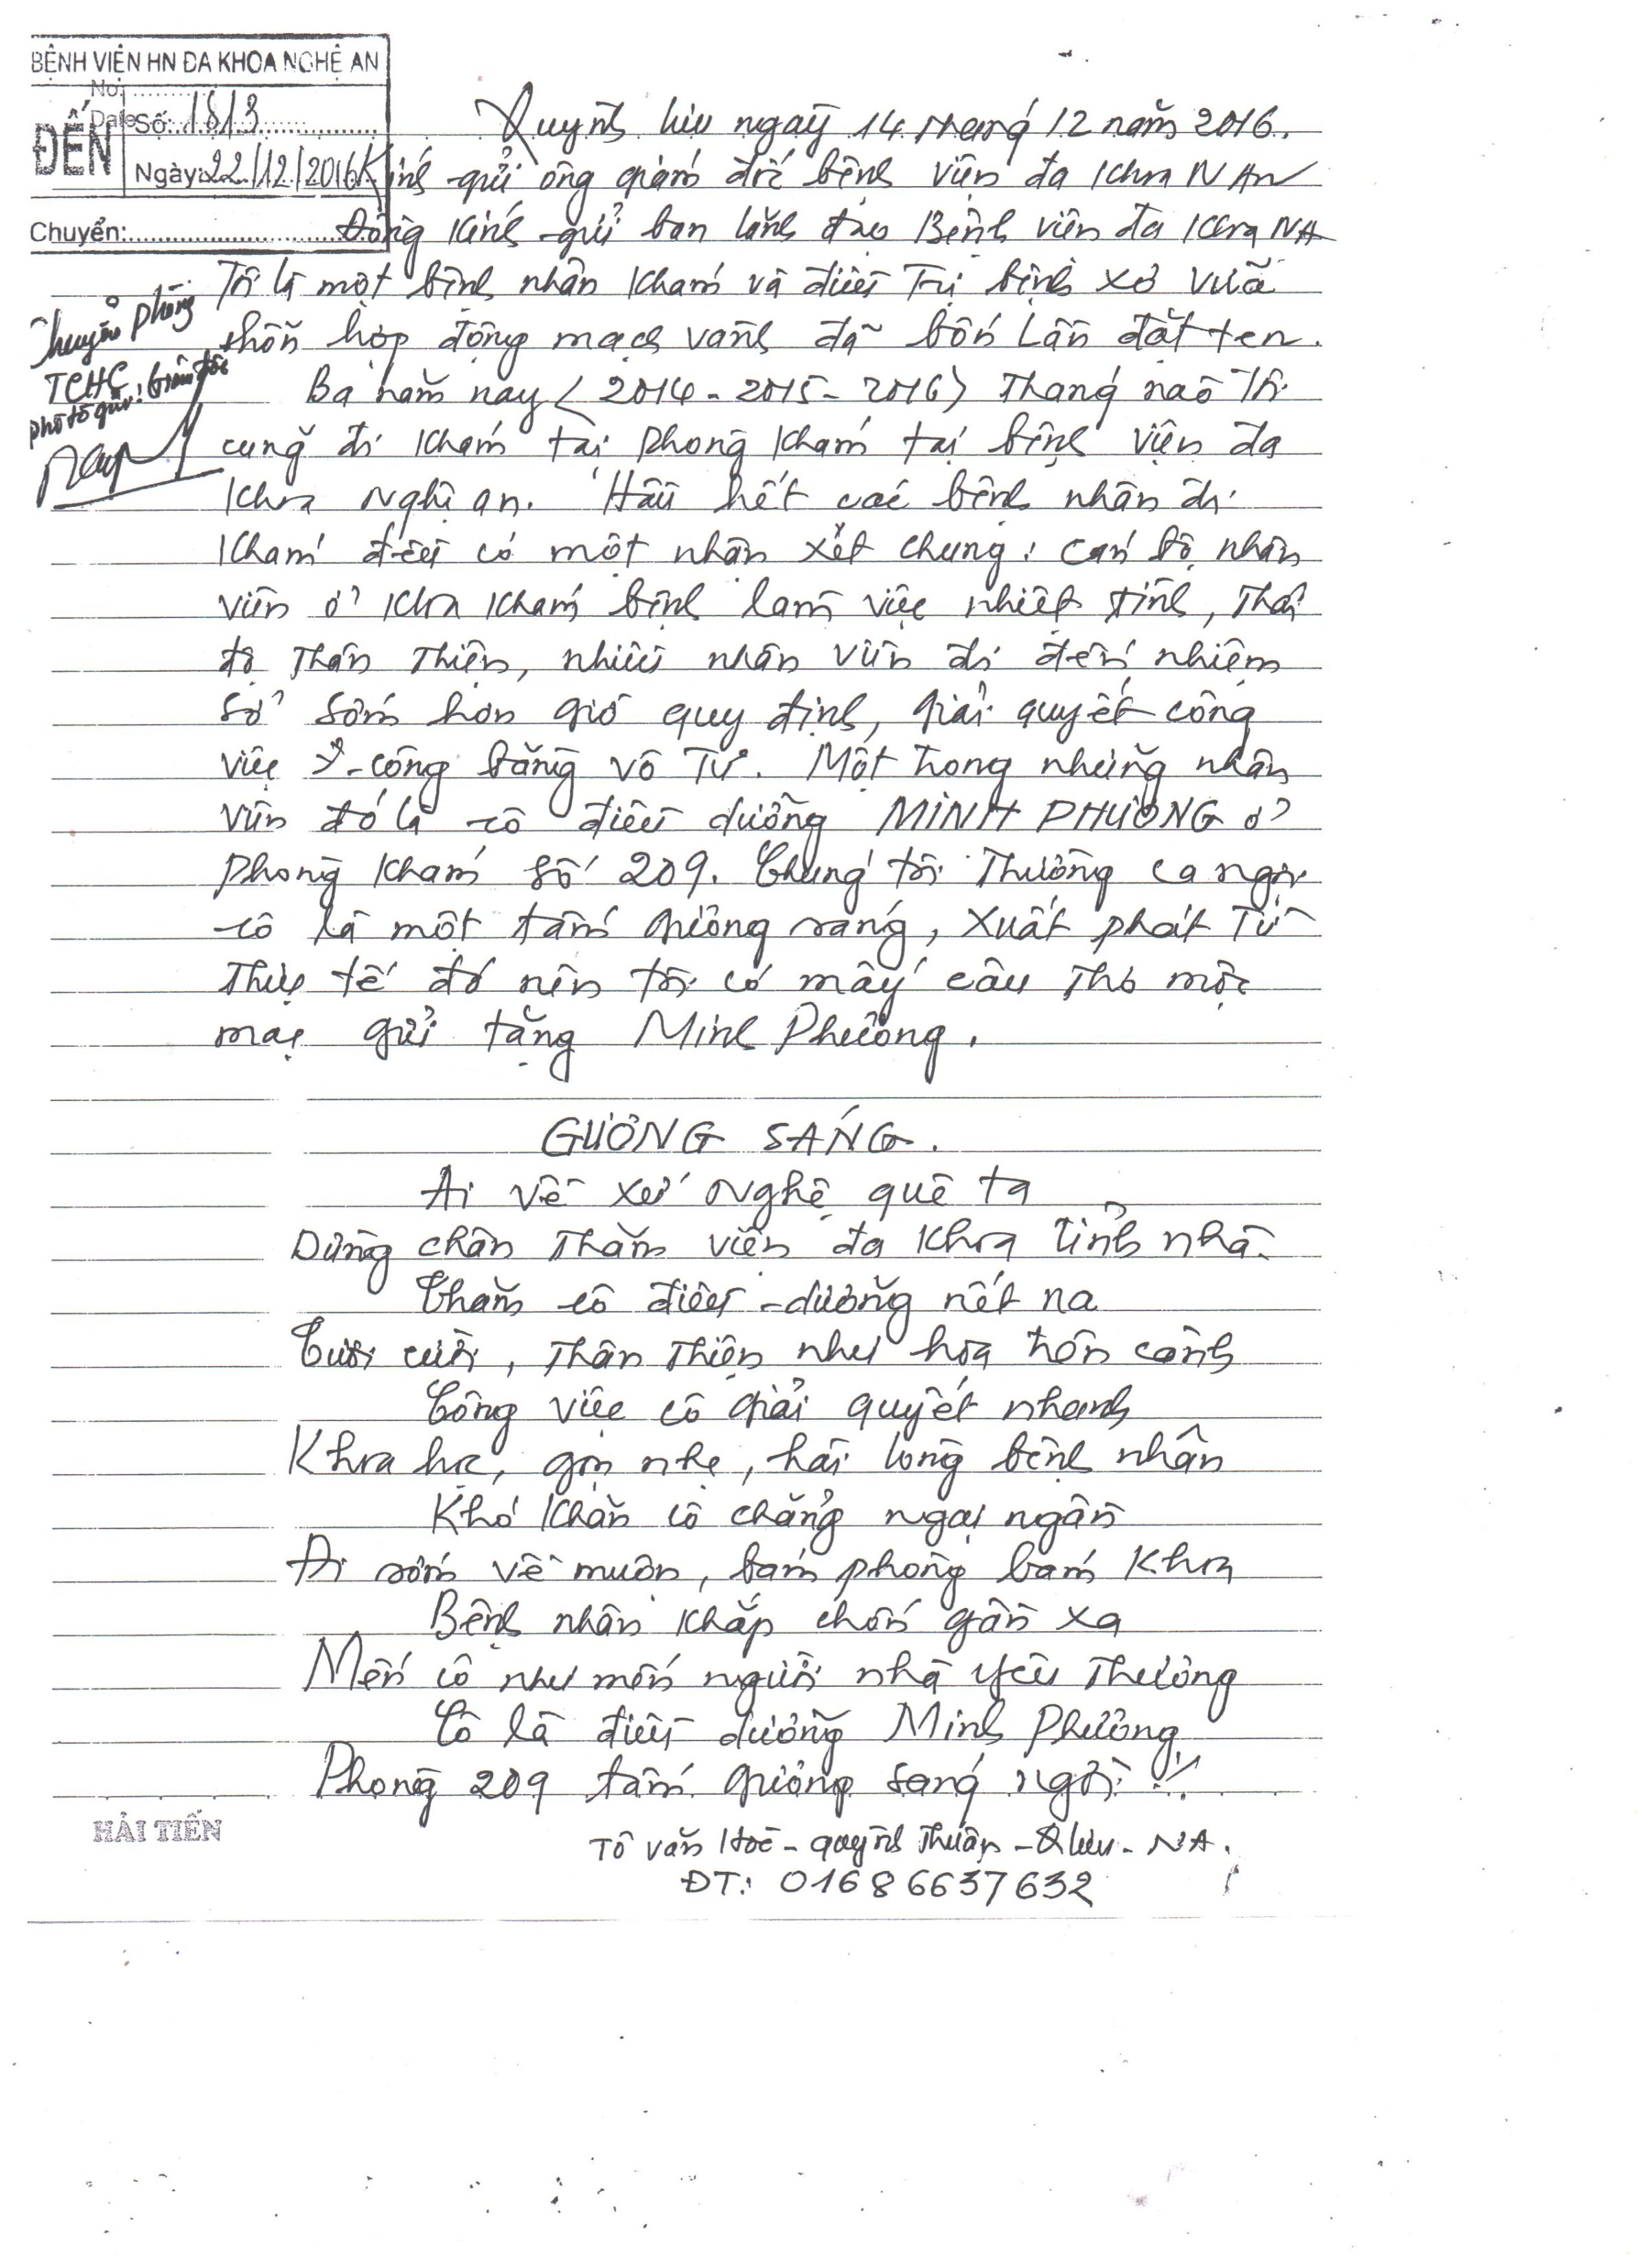 BỆNH VIỆN HN ĐA KHOA NGHỆ AN
No:
Date
ĐẾN
Số: 1813
Ngày: 22/12/2016
Chuyển:
Chuyển phòng
TCHC
phô tô gửi: Giám đốc
Quỳnh lưu ngày 14 tháng 12 năm 2016.
Kính gửi ông giám đốc bệnh viện đa khoa N An
Đồng kính gửi ban lãnh đạo Bệnh viện đa khoa NA
Tôi là một bệnh nhân khám và điều trị bệnh xơ vữa
hỗn hợp động mạch vành đã bốn lần đặt ten.
Ba năm nay (2014 - 2015 - 2016) tháng nào tôi
cũng đi khám tại phòng khám tại bệnh viện đa
khoa Nghệ an. Hầu hết các bệnh nhân đi
khám đều có một nhận xét chung: cán bộ nhân
viên ở khoa khám bệnh làm việc nhiệt tình, thái
độ thân thiện, nhiều nhân viên đi đến nhiệm
sở sớm hơn giờ quy định, giải quyết công
việc công bằng vô tư. Một trong những nhân
viên đó là cô điều dưỡng MINH PHƯƠNG ở
phòng khám số 209. Chúng tôi thường ca ngợi
cô là một tấm gương sáng, xuất phát từ
thực tế đó nên tôi có mấy câu thơ mộc
mạc gửi tặng Minh Phương.
GƯƠNG SÁNG.
Ai về xứ Nghệ quê ta
Dừng chân thăm viện đa khoa tỉnh nhà
Thăm cô điều dưỡng nết na
Tươi cười, thân thiện như hoa trên cành
Công việc cô giải quyết nhanh
Khoa học, gọn nhẹ, hài lòng bệnh nhân
Khó khăn cô chẳng ngại ngần
Đi sớm về muộn, bám phòng bám khoa
Bệnh nhân khắp chốn gần xa
Mến cô như mến người nhà yêu thương
Cô là điều dưỡng Minh Phương
Phòng 209 tấm gương sáng ngời !!
HẢI TIẾN
Tô Văn Hoè - Quỳnh Thuận - Q lưu - NA.
ĐT: 01686637632